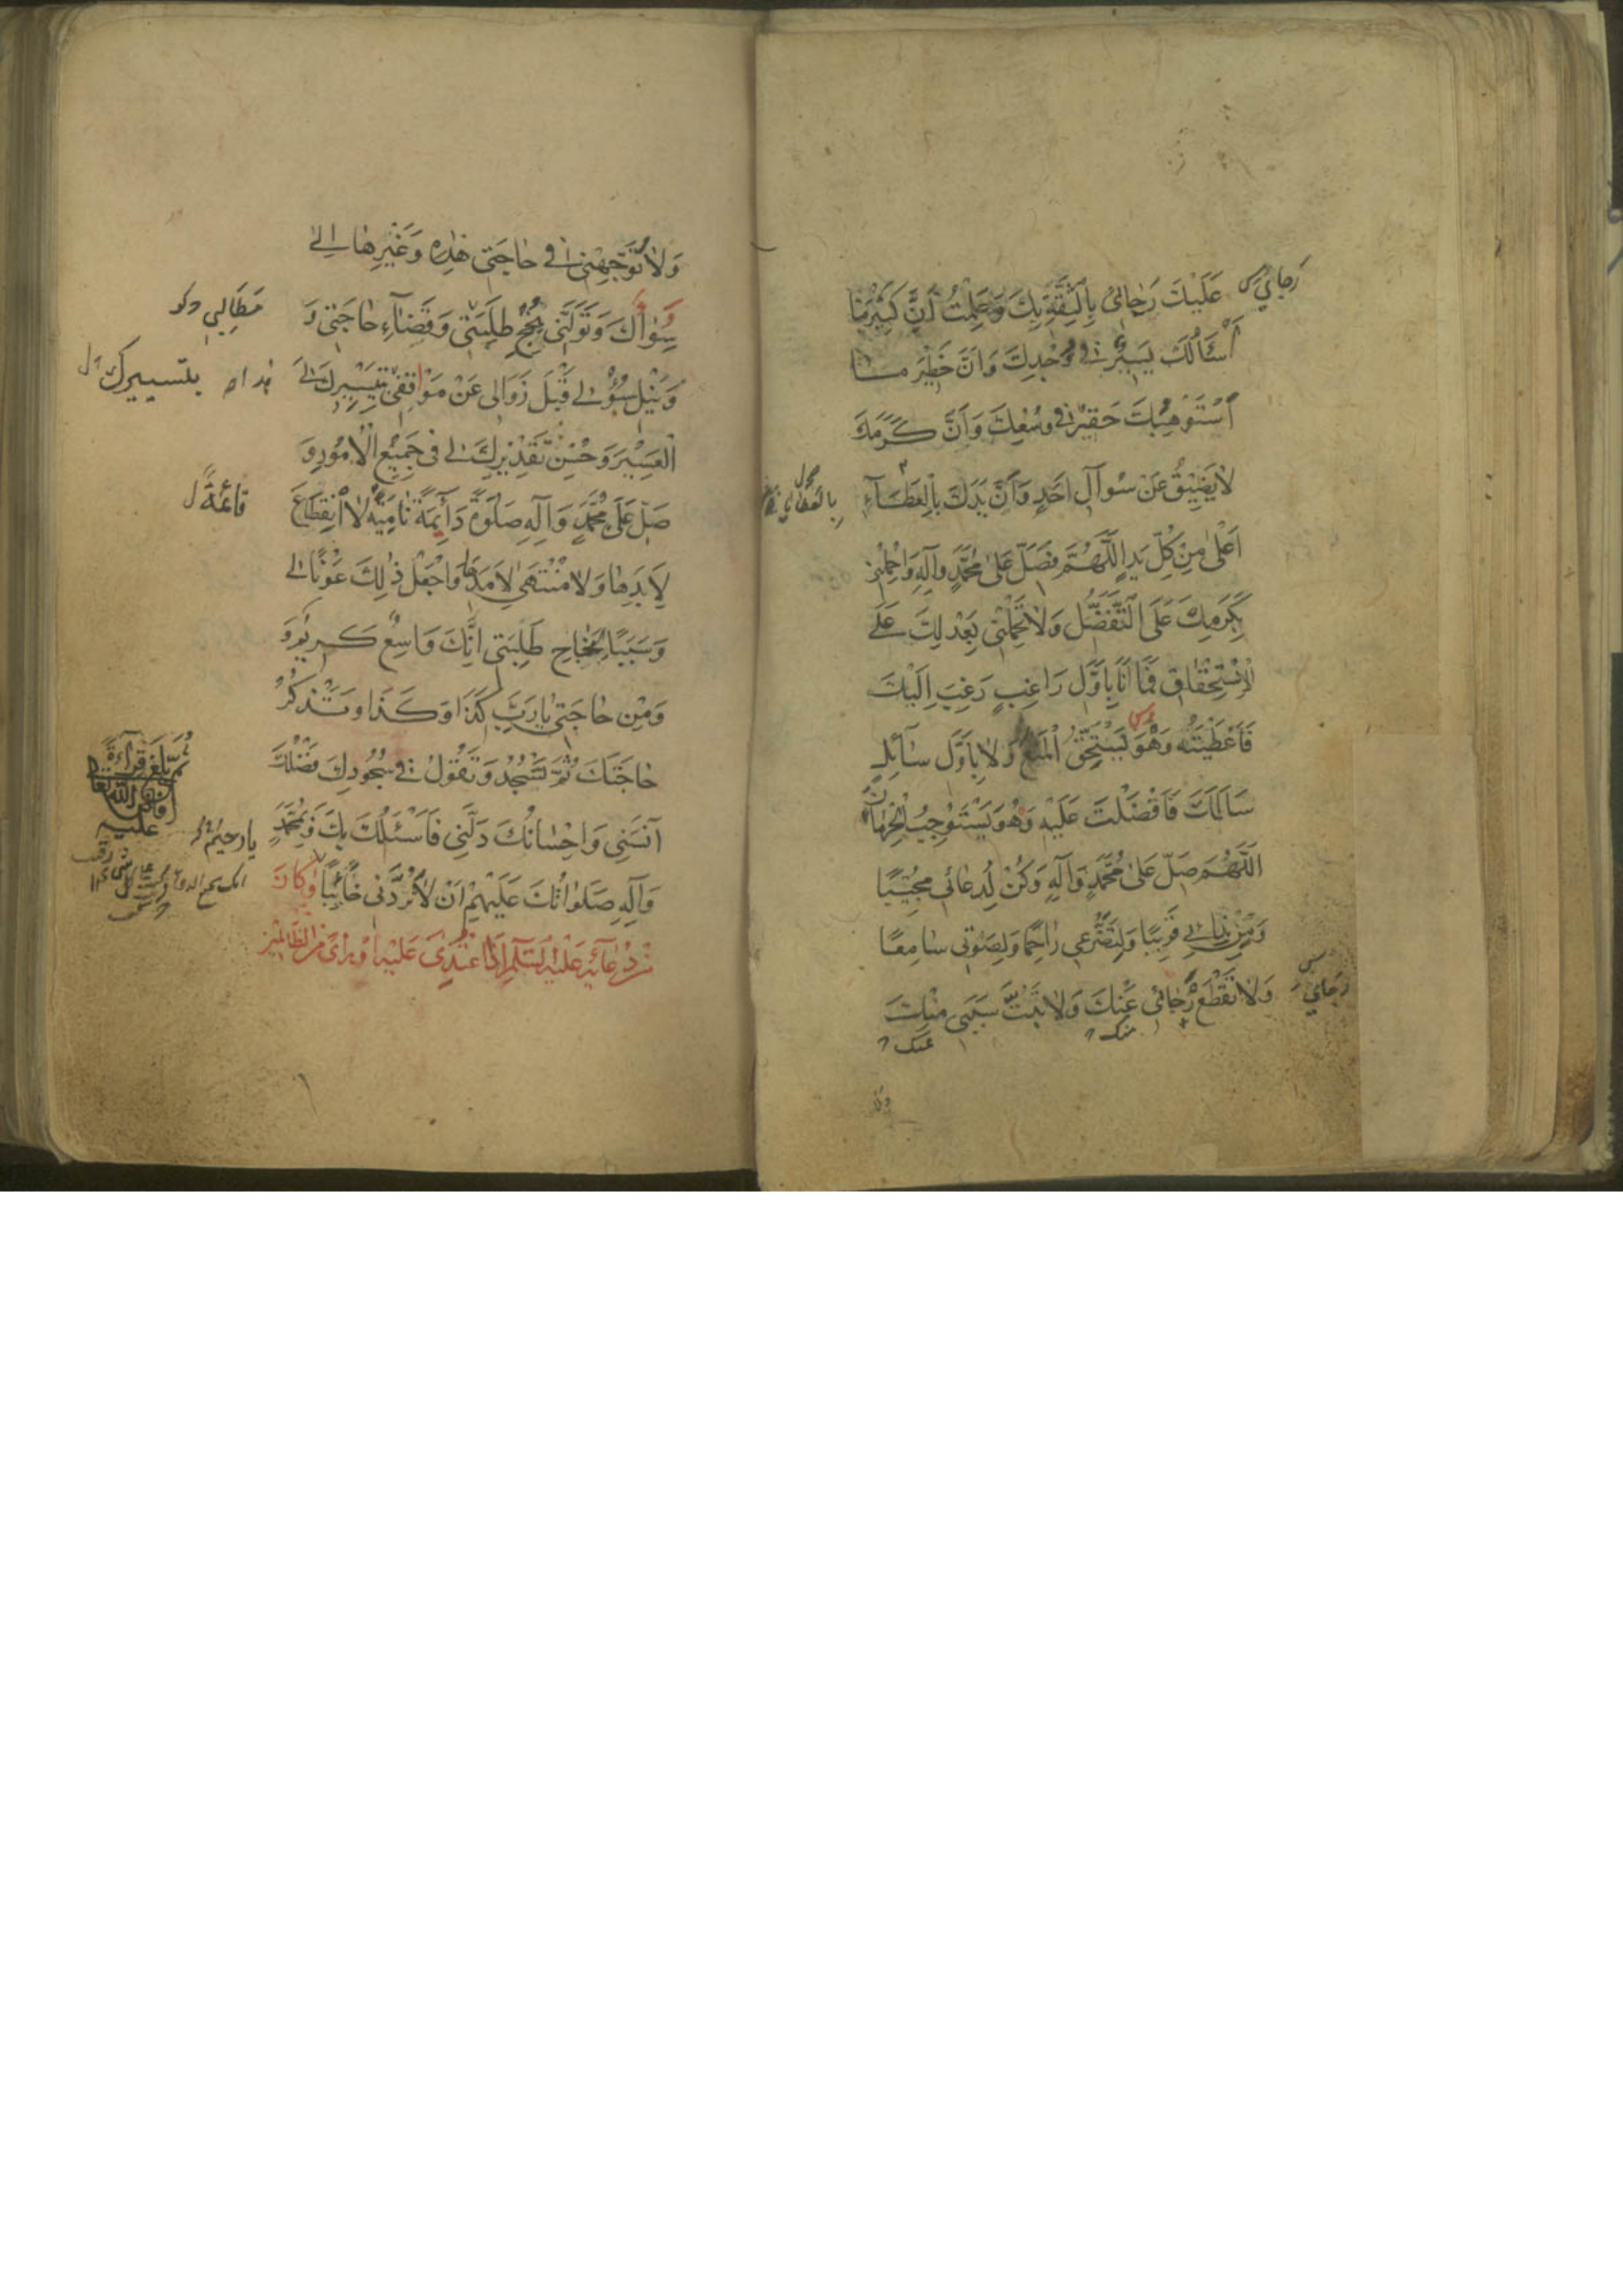 عَلَيْكَ رَجَائِي بِالثِّقَةِ بِكَ وَعَلِمْتُ أَنَّ كَثِيْرَ مَا
أَسْئَلُكَ يَسِيْرٌ فِي وُجْدِكَ وَأَنَّ خَطِيْرَ مَا
أَسْتَوْهِبُكَ حَقِيْرٌ فِي وُسْعِكَ وَأَنَّ كَرَمَكَ
لَا يَضِيْقُ عَنْ سُوآلِ أَحَدٍ وَأَنَّ يَدَكَ بِالْعَطَآءِ
أَعْلَى مِنْ كُلِّ يَدٍ اللَّهُمَّ فَصَلِّ عَلَى مُحَمَّدٍ وَآلِهِ وَاحْمِلْنِي
بِكَرَمِكَ عَلَى التَّفَضُّلِ وَلَا تَحْمِلْنِي بِعَدْلِكَ عَلَى
الْاِسْتِحْقَاقِ فَمَا أَنَا بِأَوَّلِ رَاغِبٍ رَغِبَ إِلَيْكَ
فَأَعْطَيْتَهُ وَهُوَ يَسْتَحِقُّ الْمَنْعَ وَلَا بِأَوَّلِ سَآئِلٍ
سَأَلَكَ فَأَفْضَلْتَ عَلَيْهِ وَهُوَ يَسْتَوْجِبُ الْحِرْمَانَ
اللَّهُمَّ صَلِّ عَلَى مُحَمَّدٍ وَآلِهِ وَكُنْ لِدُعَائِي مُجِيْبًا
وَمِنْ نِدَائِي قَرِيْبًا وَلِتَضَرُّعِي رَاحِمًا وَلِصَوْتِي سَامِعًا
وَلَا تَقْطَعْ رَجَائِي عَنْكَ وَلَا تَبُتَّ سَبَبِي مِنْكَ
رَجَائِي
رَجَائِي
منك
عنك
وَلَا تُوَجِّهْنِي فِي حَاجَتِي هٰذِهِ وَغَيْرِهَا إِلَى
سِوَاكَ وَتَوَلَّنِي بِنُجْحِ طَلِبَتِي وَقَضَآءِ حَاجَتِي وَ
وَنَيْلِ سُؤْلِي قَبْلَ زَوَالِي عَنْ مَوْقِفِي بِتَيْسِيْرِكَ لِيَ
الْعَسِيْرَ وَحُسْنِ تَقْدِيْرِكَ لِي فِي جَمِيْعِ الْأُمُوْرِ وَ
صَلِّ عَلَى مُحَمَّدٍ وَآلِهِ صَلٰوةً دَائِمَةً نَامِيَةً لَا انْقِطَاعَ
لِأَبَدِهَا وَلَا مُنْتَهَى لِأَمَدِهَا وَاجْعَلْ ذٰلِكَ عَوْنًا لِي
وَسَبَبًا لِنَجَاحِ طَلِبَتِي إِنَّكَ وَاسِعٌ كَرِيْمٌ وَ
وَمِنْ حَاجَتِي يَا رَبِّ كَذَا وَكَذَا وَتَذْكُرُ
حَاجَتَكَ ثُمَّ تَسْجُدُ وَتَقُوْلُ فِي سُجُوْدِكَ فَضْلُكَ
آنَسَنِي وَإِحْسَانُكَ دَلَّنِي فَأَسْئَلُكَ بِكَ وَبِمُحَمَّدٍ
وَآلِهِ صَلَوَاتُكَ عَلَيْهِمْ أَنْ لَا تَرُدَّنِي خَائِبًا وَكَانَ
مِنْ دُعَآئِهِ عَلَيْهِ السَّلَامُ إِذَا اعْتُدِيَ عَلَيْهِ أَوْ رَأَى مِنَ الظَّالِمِيْنَ
مَطَالِبِي
بتيسيرك
قائمةً
ثُمَّ بَلَغَ قِرَاءَةً
أفاض الله تعالى
عليه